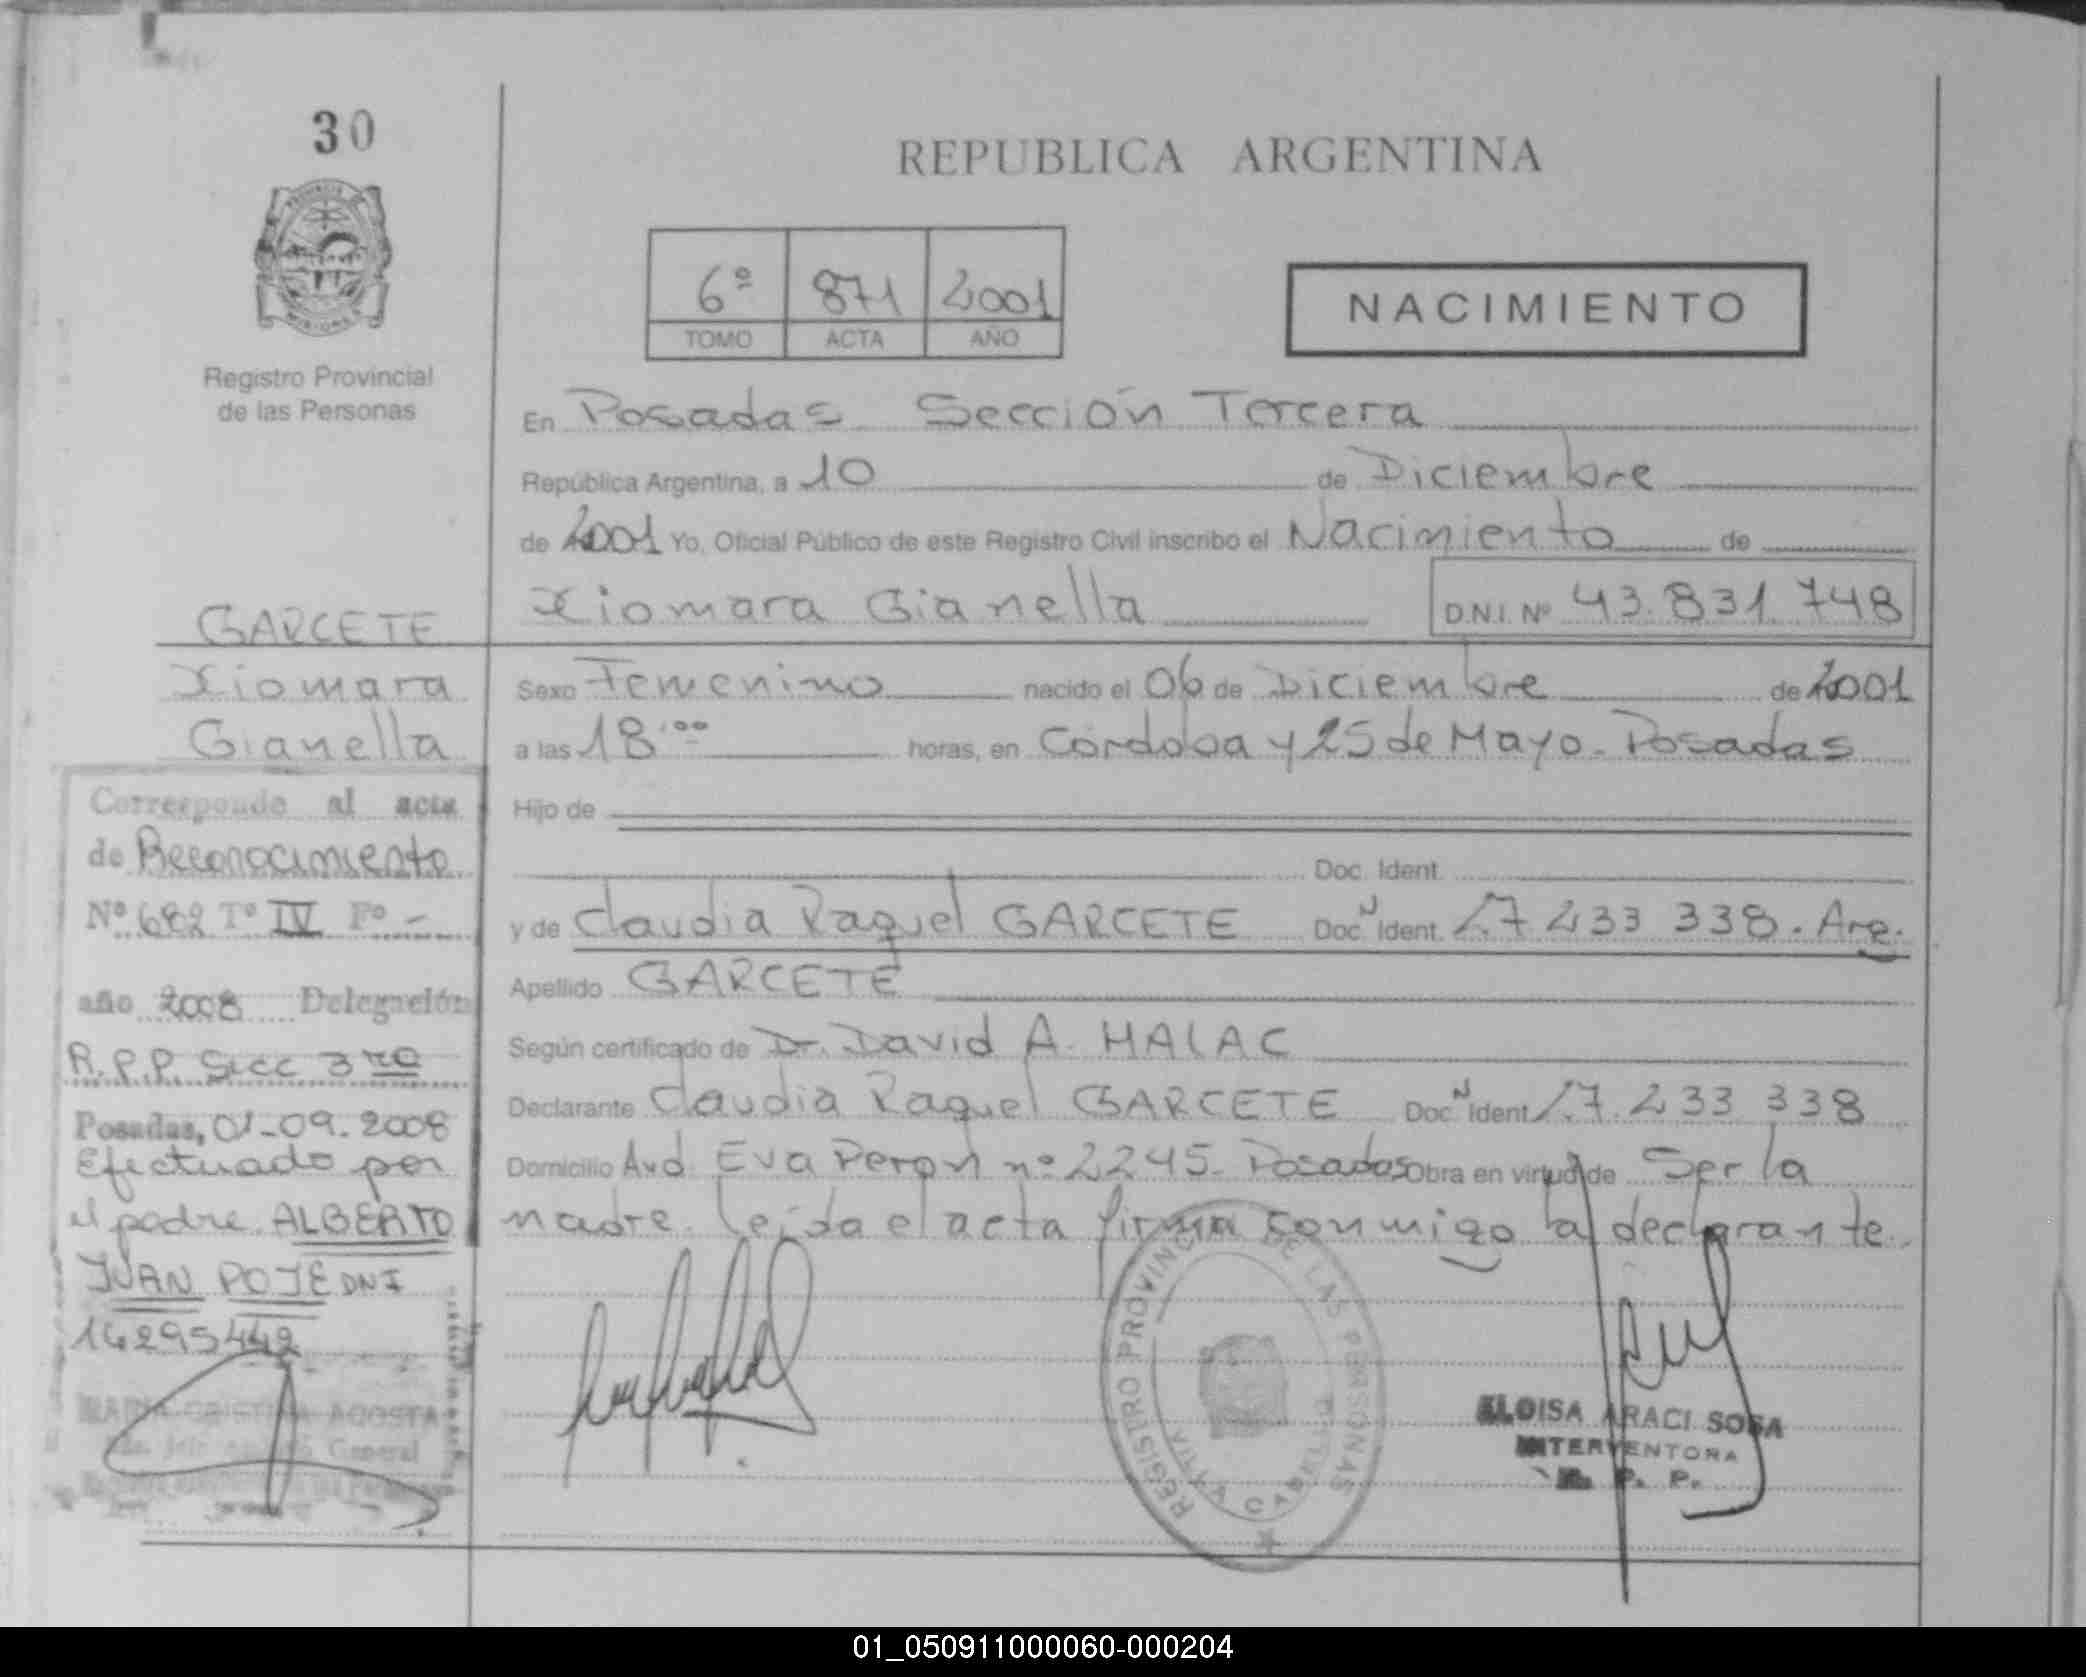 30
REPUBLICA ARGENTINA
6º 871 2001
TOMO ACTA AÑO
NACIMIENTO
Registro Provincial
de las Personas
En Posadas Sección Tercera
República Argentina, a 10 de Diciembre
de 2001 Yo, Oficial Público de este Registro Civil inscribo el Nacimiento de
Xiomara Gianella D.N.I. Nº 43.831.748
GARCETE
Xiomara
Gianella
Sexo Femenino nacido el 06 de Diciembre de 2001
a las 18:00 horas, en Córdoba y 25 de Mayo. Posadas
Hijo de
Doc. Ident.
y de Claudia Raquel GARCETE Doc. N Ident. 27 233 338. Arg.
Apellido GARCETE
Según certificado de Dr. David A. HALAC
Declarante Claudia Raquel GARCETE Doc. N Ident. 27.233 338
Domicilio Avd. Eva Peron nº 2245. Posadas Obra en virtud de Ser la
madre. leida el acta firma conmigo la declarante.
Corresponde al acta
de Reconocimiento
Nº 682 Tº IV Fº -
año 2008 Delegación
R.P.P. Secc 3ra
Posadas, 01-09-2008
Efectuado por
el padre ALBERTO
JUAN POJE DNI
14295442
MARIA CRISTINA ACOSTA
General
REGISTRO PROVINCIAL DE LAS PERSONAS
ELOISA ARACI SOSA
INTERVENTORA
R. P. P.
01_050911000060-000204